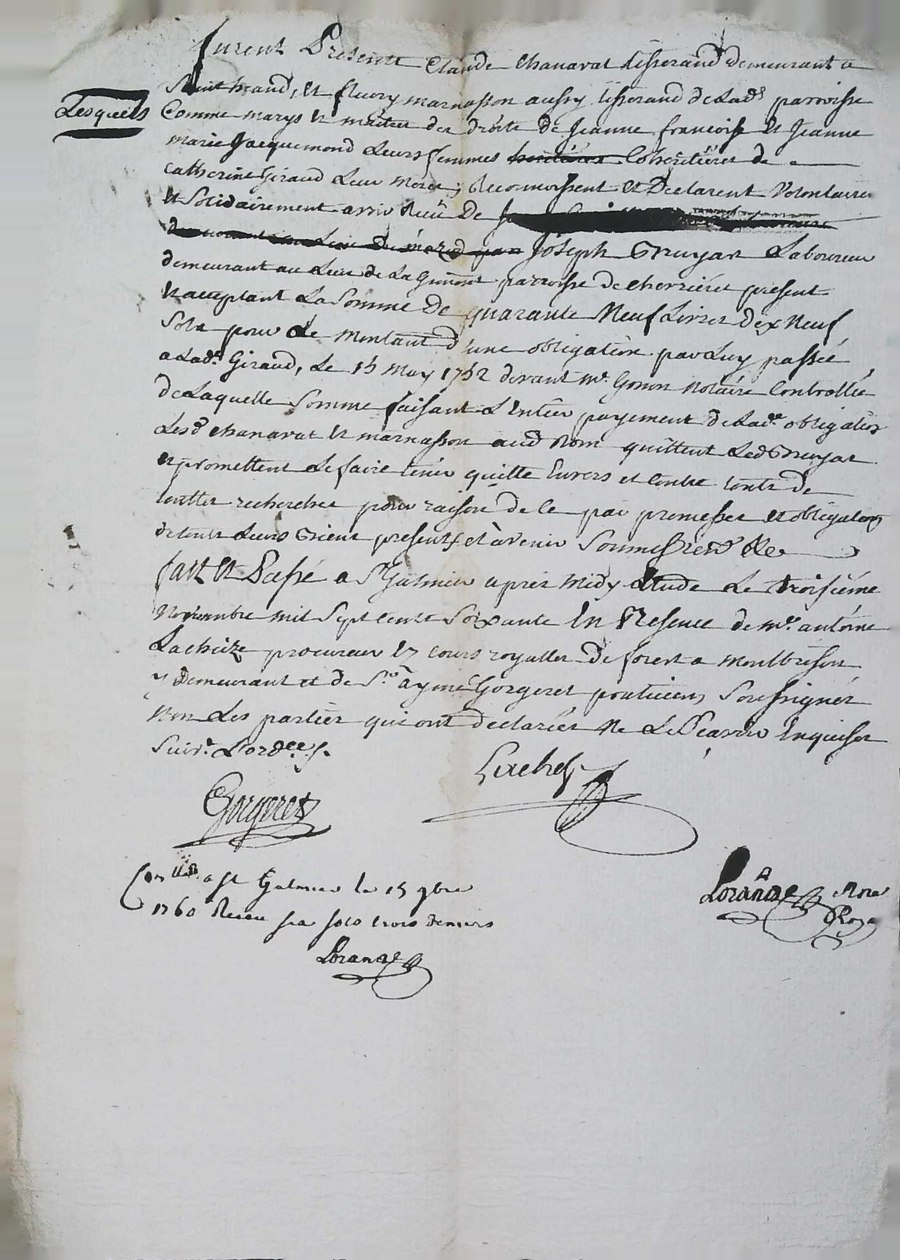 furent Presents Claude Chanavat tisserand demeurant a
Saint Haand, et fleury marnasson aussy tisserand de Lad. parroisse
Lesquels
Comme marys et maitres des droits de Jeanne françoise et Jeanne
marie Jacquemond Leurs femmes Cohéritières de
Catherine Giraud Leur mere, Reconnoissent et Déclarent Volontaire
et Solidairement avoir Reçu De
Joseph Gruyat Laboureur
demeurant au Lieu de La parroisse de chevrières present
et acceptant La Somme De quarante Neuf Livres Dix Neuf
Sols pour Le montant d'une obligation par Luy passée
a Lad. Giraud, Le 15 may 1752 devant me. Gonon Notaire Controllée
de Laquelle Somme faisant L'Entier payement de Lad. obligation
Lesd. Chanavat et marnasson aud. Nom quittent Led. Gruyat
et promettent Le faire tenir quitte Envers et Contre touts de
touttes recherches pour raison de Ce par promesses et obligations
de touts Leurs Biens presents et avenir Soumissions &c
fait et Passé a St. Galmier apres midy Etude Le troisième
Novembre mil Sept Cent Soixante En Presence de me. antoine
Lacheize procureur ez cours royalles De forest a montbrison
y Demeurant et de Sr. aymé Gorgeret praticien, Soussignés
Non Les parties qui ont declarées Ne Le Sçavoir Enquises
Suiv. L'ord.
Gorgeret
Lacheze
Con.llé a St Galmier le 15 9bre
1760 Receu six sols trois deniers
Lorange
Lorange Nore
Roya